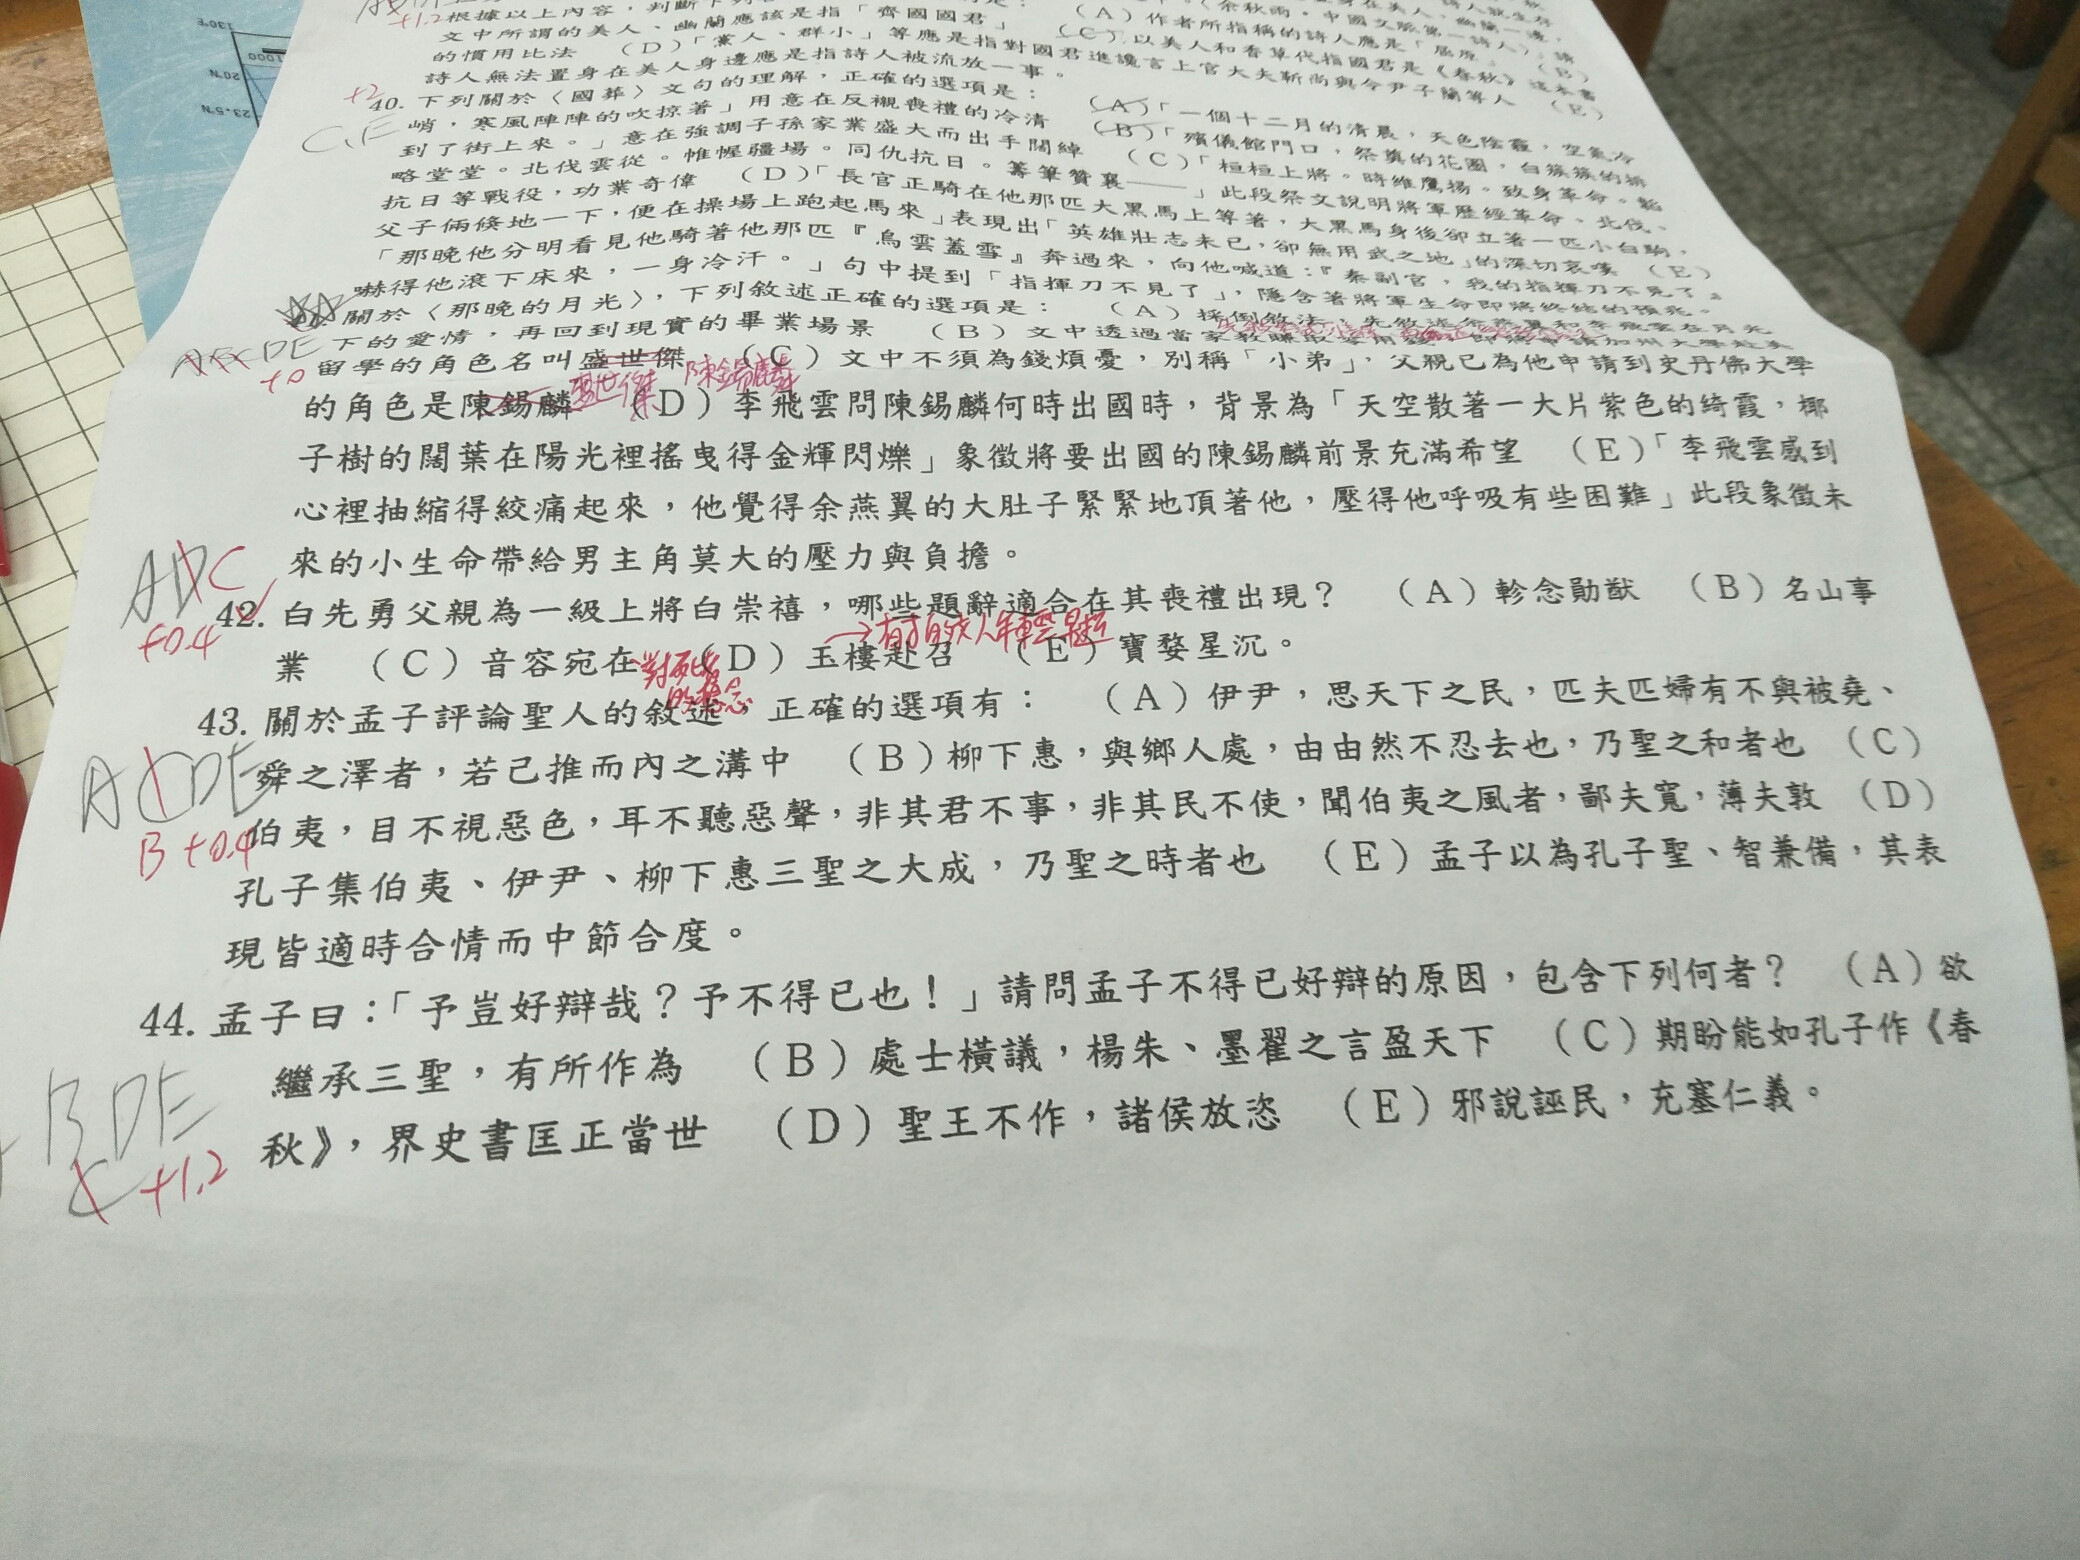 +1.2 根據以上內容，判斷下列
文中所謂的美人、幽蘭應該是指「齊國國君」 (A)作者所指稱的詩人應是「屈原」 (B)
的慣用比法 (D)「黨人、群小」等應是指對國君進讒言上官大夫靳尚與令尹子蘭等人 (E)
(C)以美人和香草代指國君是《春秋》這本書
詩人無法置身在美人身邊應是指詩人被流放一事。
+2
40. 下列關於〈國葬〉文句的理解，正確的選項是： (A)「一個十二月的清晨，天色陰霾，空氣冷
C,E 峭，寒風陣陣的吹掠著」用意在反襯喪禮的冷清 (B)「殯儀館門口，祭奠的花圈，白簇簇的排
到了街上來。」意在強調子孫家業盛大而出手闊綽 (C)「桓桓上將。時維鷹揚。致身革命。韜
略堂堂。北伐雲從。帷幄疆場。同仇抗日。籌筆贊襄——」此段祭文說明將軍歷經革命、北伐、
抗日等戰役，功業奇偉 (D)「長官正騎在他那匹大黑馬上等著，大黑馬身後卻立著一匹小白駒，
父子倆倏地一下，便在操場上跑起馬來」表現出「英雄壯志未已，卻無用武之地」的深切哀嘆 (E)
「那晚他分明看見他騎著他那匹『烏雲蓋雪』奔過來，向他喊道：『秦副官，我的指揮刀不見了。』
嚇得他滾下床來，一身冷汗。」句中提到「指揮刀不見了」，隱含著將軍生命即將終結的預兆。
關於〈那晚的月光〉，下列敘述正確的選項是： (A)採倒敘法，先敘述余燕翼和李飛雲在月光
下的愛情，再回到現實的畢業場景 (B)文中透過當家教賺取費用，即將申請加州大學赴美
+0 留學的角色名叫盛世傑 (C)文中不須為錢煩憂，別稱「小弟」，父親已為他申請到史丹佛大學
陳錫麟
盛世傑
的角色是陳錫麟 (D)李飛雲問陳錫麟何時出國時，背景為「天空散著一大片紫色的綺霞，椰
子樹的闊葉在陽光裡搖曳得金輝閃爍」象徵將要出國的陳錫麟前景充滿希望 (E)「李飛雲感到
心裡抽縮得絞痛起來，他覺得余燕翼的大肚子緊緊地頂著他，壓得他呼吸有些困難」此段象徵未
來的小生命帶給男主角莫大的壓力與負擔。
ADC
+0.4
42. 白先勇父親為一級上將白崇禧，哪些題辭適合在其喪禮出現？ (A)軫念勛猷 (B)名山事
→有才的文人年輕早逝
業 (C)音容宛在 (D)玉樓赴召 (E)寶婺星沉。
對死者
的格念
43. 關於孟子評論聖人的敘述，正確的選項有： (A)伊尹，思天下之民，匹夫匹婦有不與被堯、
ACDE
舜之澤者，若己推而內之溝中 (B)柳下惠，與鄉人處，由由然不忍去也，乃聖之和者也 (C)
B +0.4
伯夷，目不視惡色，耳不聽惡聲，非其君不事，非其民不使，聞伯夷之風者，鄙夫寬，薄夫敦 (D)
孔子集伯夷、伊尹、柳下惠三聖之大成，乃聖之時者也 (E)孟子以為孔子聖、智兼備，其表
現皆適時合情而中節合度。
44. 孟子曰：「予豈好辯哉？予不得已也！」請問孟子不得已好辯的原因，包含下列何者？ (A)欲
繼承三聖，有所作為 (B)處士橫議，楊朱、墨翟之言盈天下 (C)期盼能如孔子作《春
BDE
秋》，界史書匡正當世 (D)聖王不作，諸侯放恣 (E)邪說誣民，充塞仁義。
C +1.2